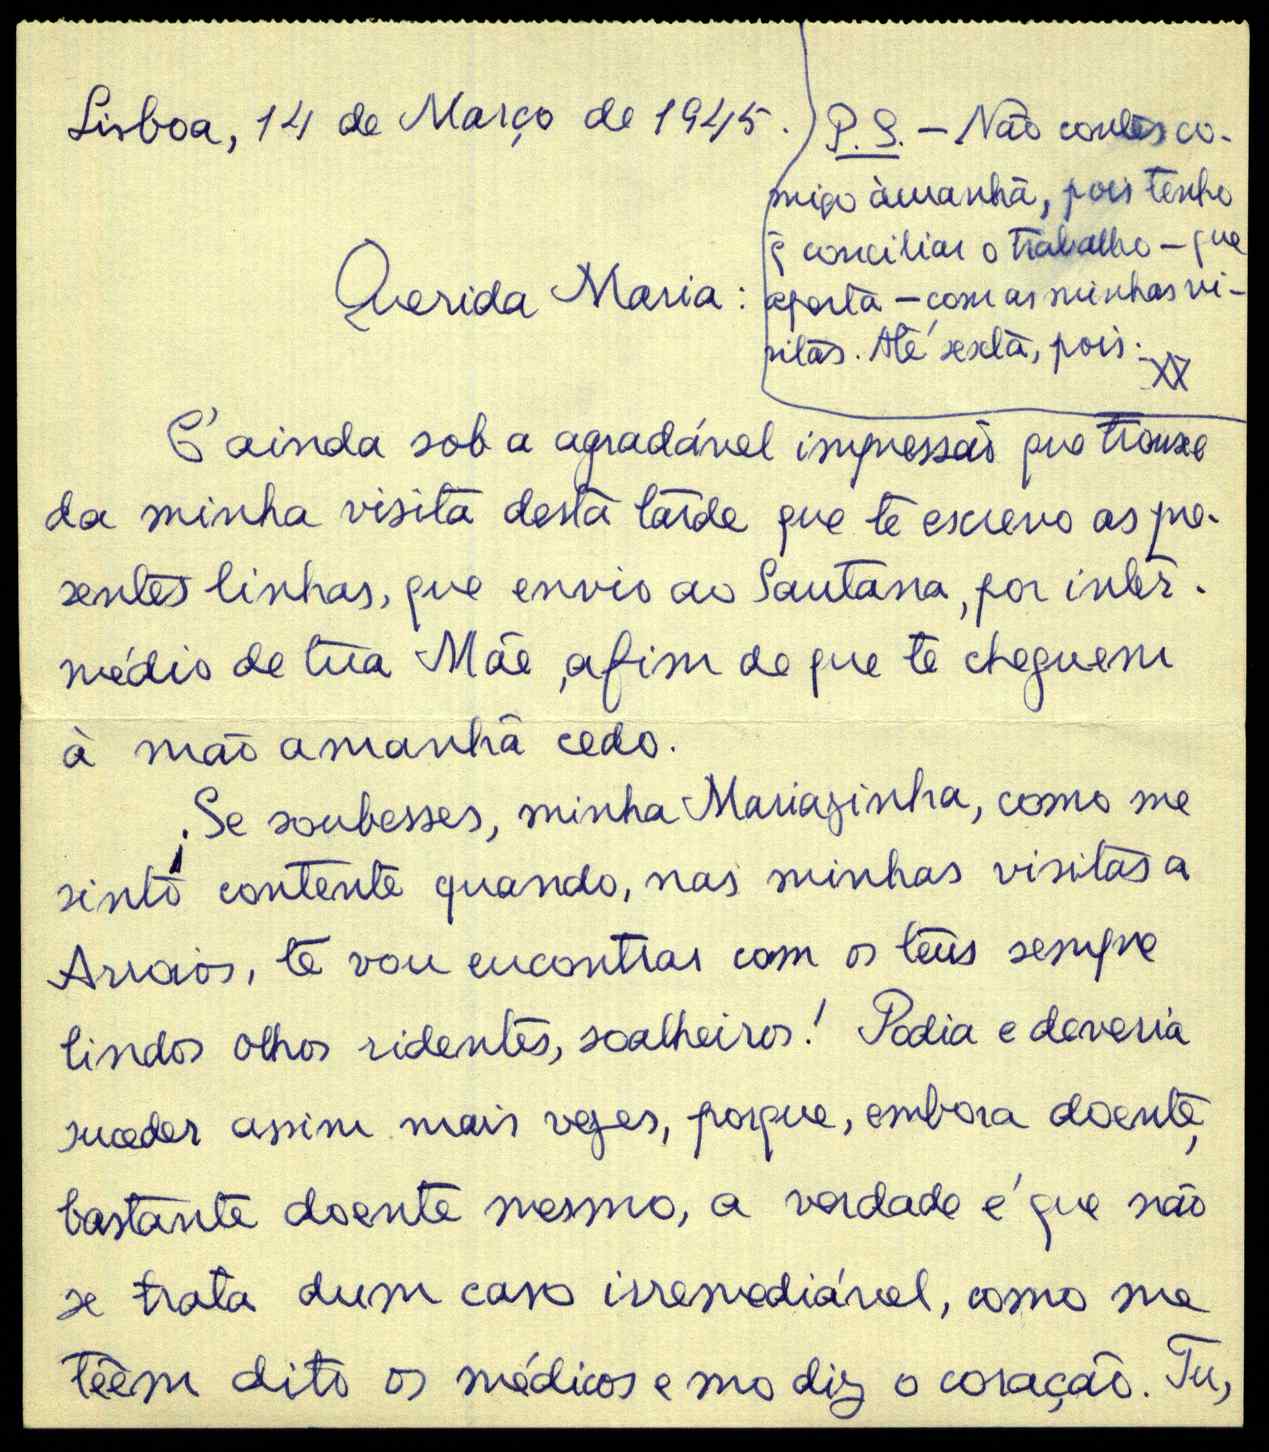 Lisboa, 14 de Março de 1945.
P. S. — Não contes co-
migo àmanhã, pois tenho
q̃ conciliar o trabalho — que
aperta — com as minhas vi-
sitas. Até sexta, pois.
XX
Querida Maria:
E' ainda sob a agradável impressão que trouxe
da minha visita desta tarde que te escrevo as pre-
sentes linhas, que envio ao Santana, por inter-
médio de tua Mãe, afim de que te cheguem
à mão amanhã cedo.
Se soubesses, minha Mariazinha, como me
sinto contente quando, nas minhas visitas a
Arroios, te vou encontrar com os teus sempre
lindos olhos ridentes, soalheiros! Podia e deveria
suceder assim mais vezes, porque, embora doente,
bastante doente mesmo, a verdade é que não
se trata dum caso irremediável, como me
teem dito os médicos e mo diz o coração. Tu,